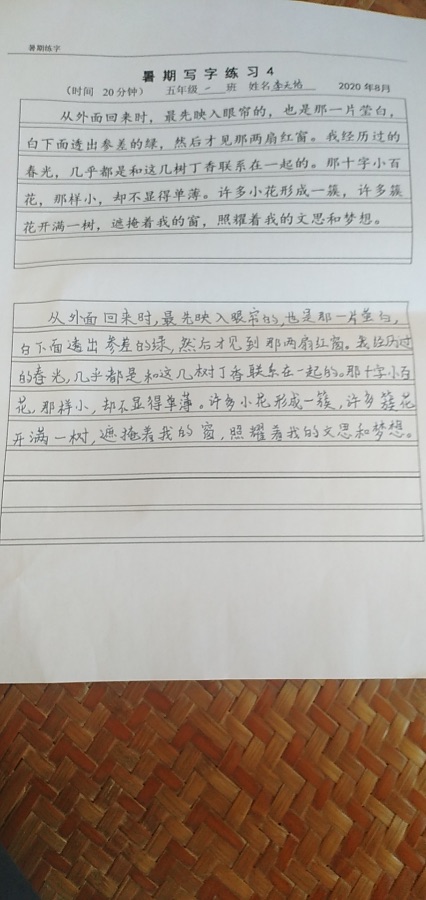 暑期练字
暑期写字练习4
（时间 20分钟） 五年级 一 班 姓名 2020年8月
从外面回来时，最先映入眼帘的，也是那一片莹白，
白下面透出参差的绿，然后才见那两扇红窗。我经历过的
春光，几乎都是和这几树丁香联系在一起的。那十字小百
花，那样小，却不显得单薄。许多小花形成一簇，许多簇
花开满一树，遮掩着我的窗，照耀着我的文思和梦想。
从外面回来时，最先映入眼帘的，也是那一片莹白，
白下面透出参差的绿，然后才见到那两扇红窗。我经历过
的春光，几乎都是和这几树丁香联系在一起的。那十字小百
花，那样小，却不显得单薄。许多小花形成一簇，许多簇花
开满一树，遮掩着我的窗，照耀着我的文思和梦想。